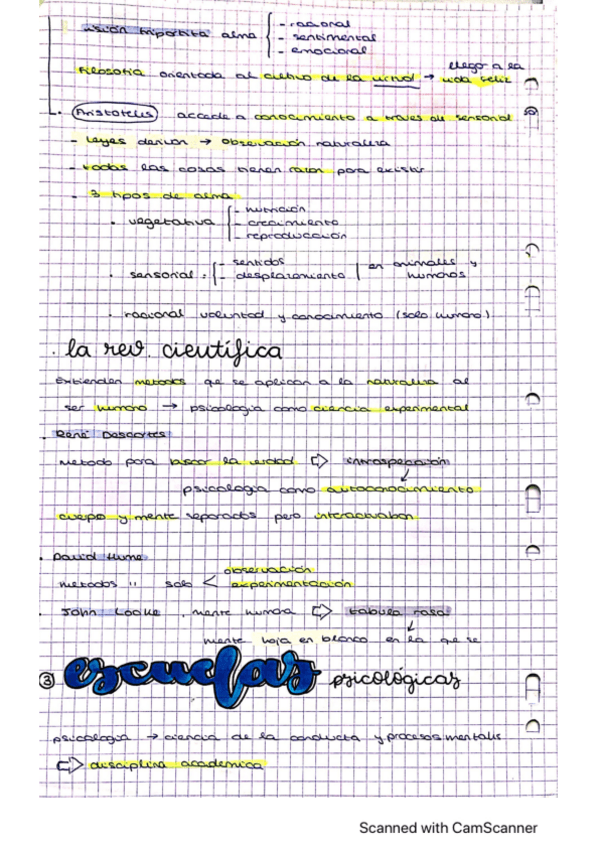 visión tripartita alma { - racional
- sentimental
- emocional
llego a la
filosofía orientada al cultivo de la virtud → vida feliz
Aristóteles accede a conocimiento a traves de sensorial
- leyes derivan → observación naturaleza
- todas las cosas tienen razon para existir
- 3 tipos de alma
· vegetativa { - nutrición
- crecimiento
- reproducción
· sensorial : { - sentidos
- desplazamiento | en animales y humanos
· racional voluntad y conocimiento (solo humano)
· la rev. científica
Extienden metodos que se aplican a la naturaleza al
ser humano → psicologia como ciencia experimental
· René Descartes
metodo para buscar la verdad ⇨ introspección
psicologia como autoconocimiento
cuerpo y mente separados pero interactuaban
· David Hume
observación
metodos " solo < experimentación
· John Locke . mente humana ⇨ tabula rasa
mente hoja en blanco en la que se
③ escuelas psicológicas
psicologia → ciencia de la conducta y procesos mentales
⇨ disciplina academica
Scanned with CamScanner